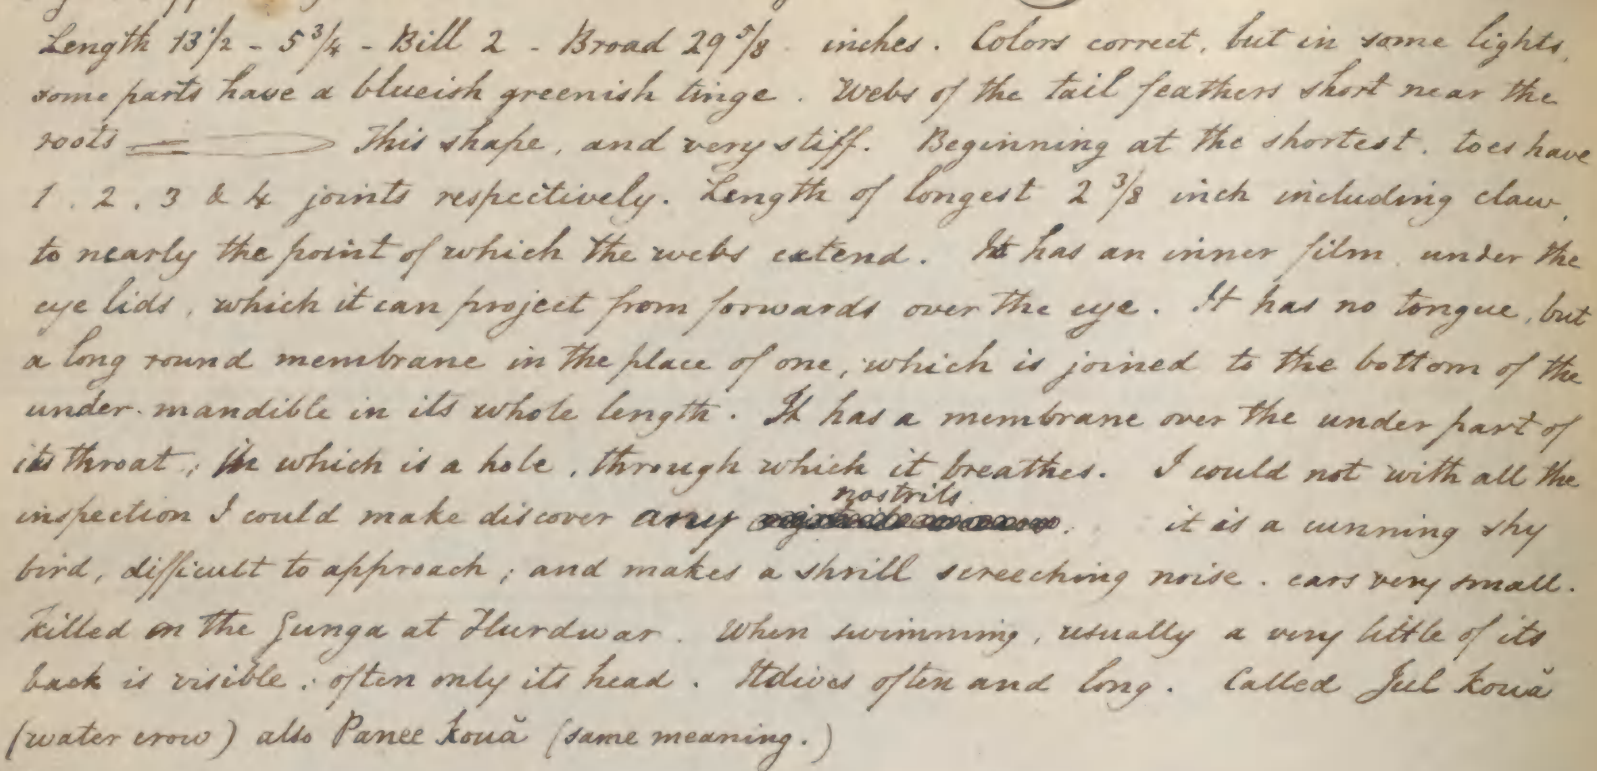 Length 13 1/2 - 5 3/4 - Bill 2 - Broad 29 5/8 inches. Colors correct, but in some lights,
some parts have a blueish greenish tinge. Webs of the tail feathers short near the
roots This shape, and very stiff. Beginning at the shortest. toes have
1. 2. 3 & 4 joints respectively. Length of longest 2 3/8 inch including claw,
to nearly the point of which the webs extend. It has an inner film under the
eye lids, which it can project from forwards over the eye. It has no tongue, but
a long round membrane in the place of one, which is joined to the bottom of the
under-mandible in its whole length. It has a membrane over the under part of
its throat; in which is a hole, through which it breathes. I could not with all the
nostrils
inspection I could make discover any . it is a cunning shy
bird, difficult to approach; and makes a shrill screeching noise. ears very small.
Killed on the Gunga at Hurdwar. When swimming, usually a very little of its
back is visible; often only its head. It dives often and long. Called Jul Kouă
(water crow) also Panee Kouă (same meaning.)